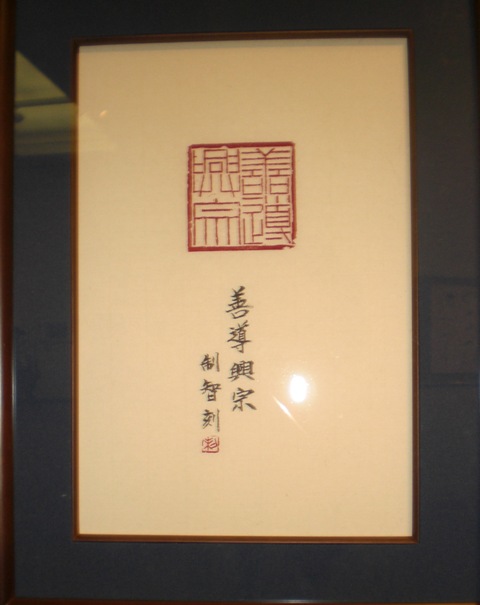 善導
興宗
善導興宗
制智刻